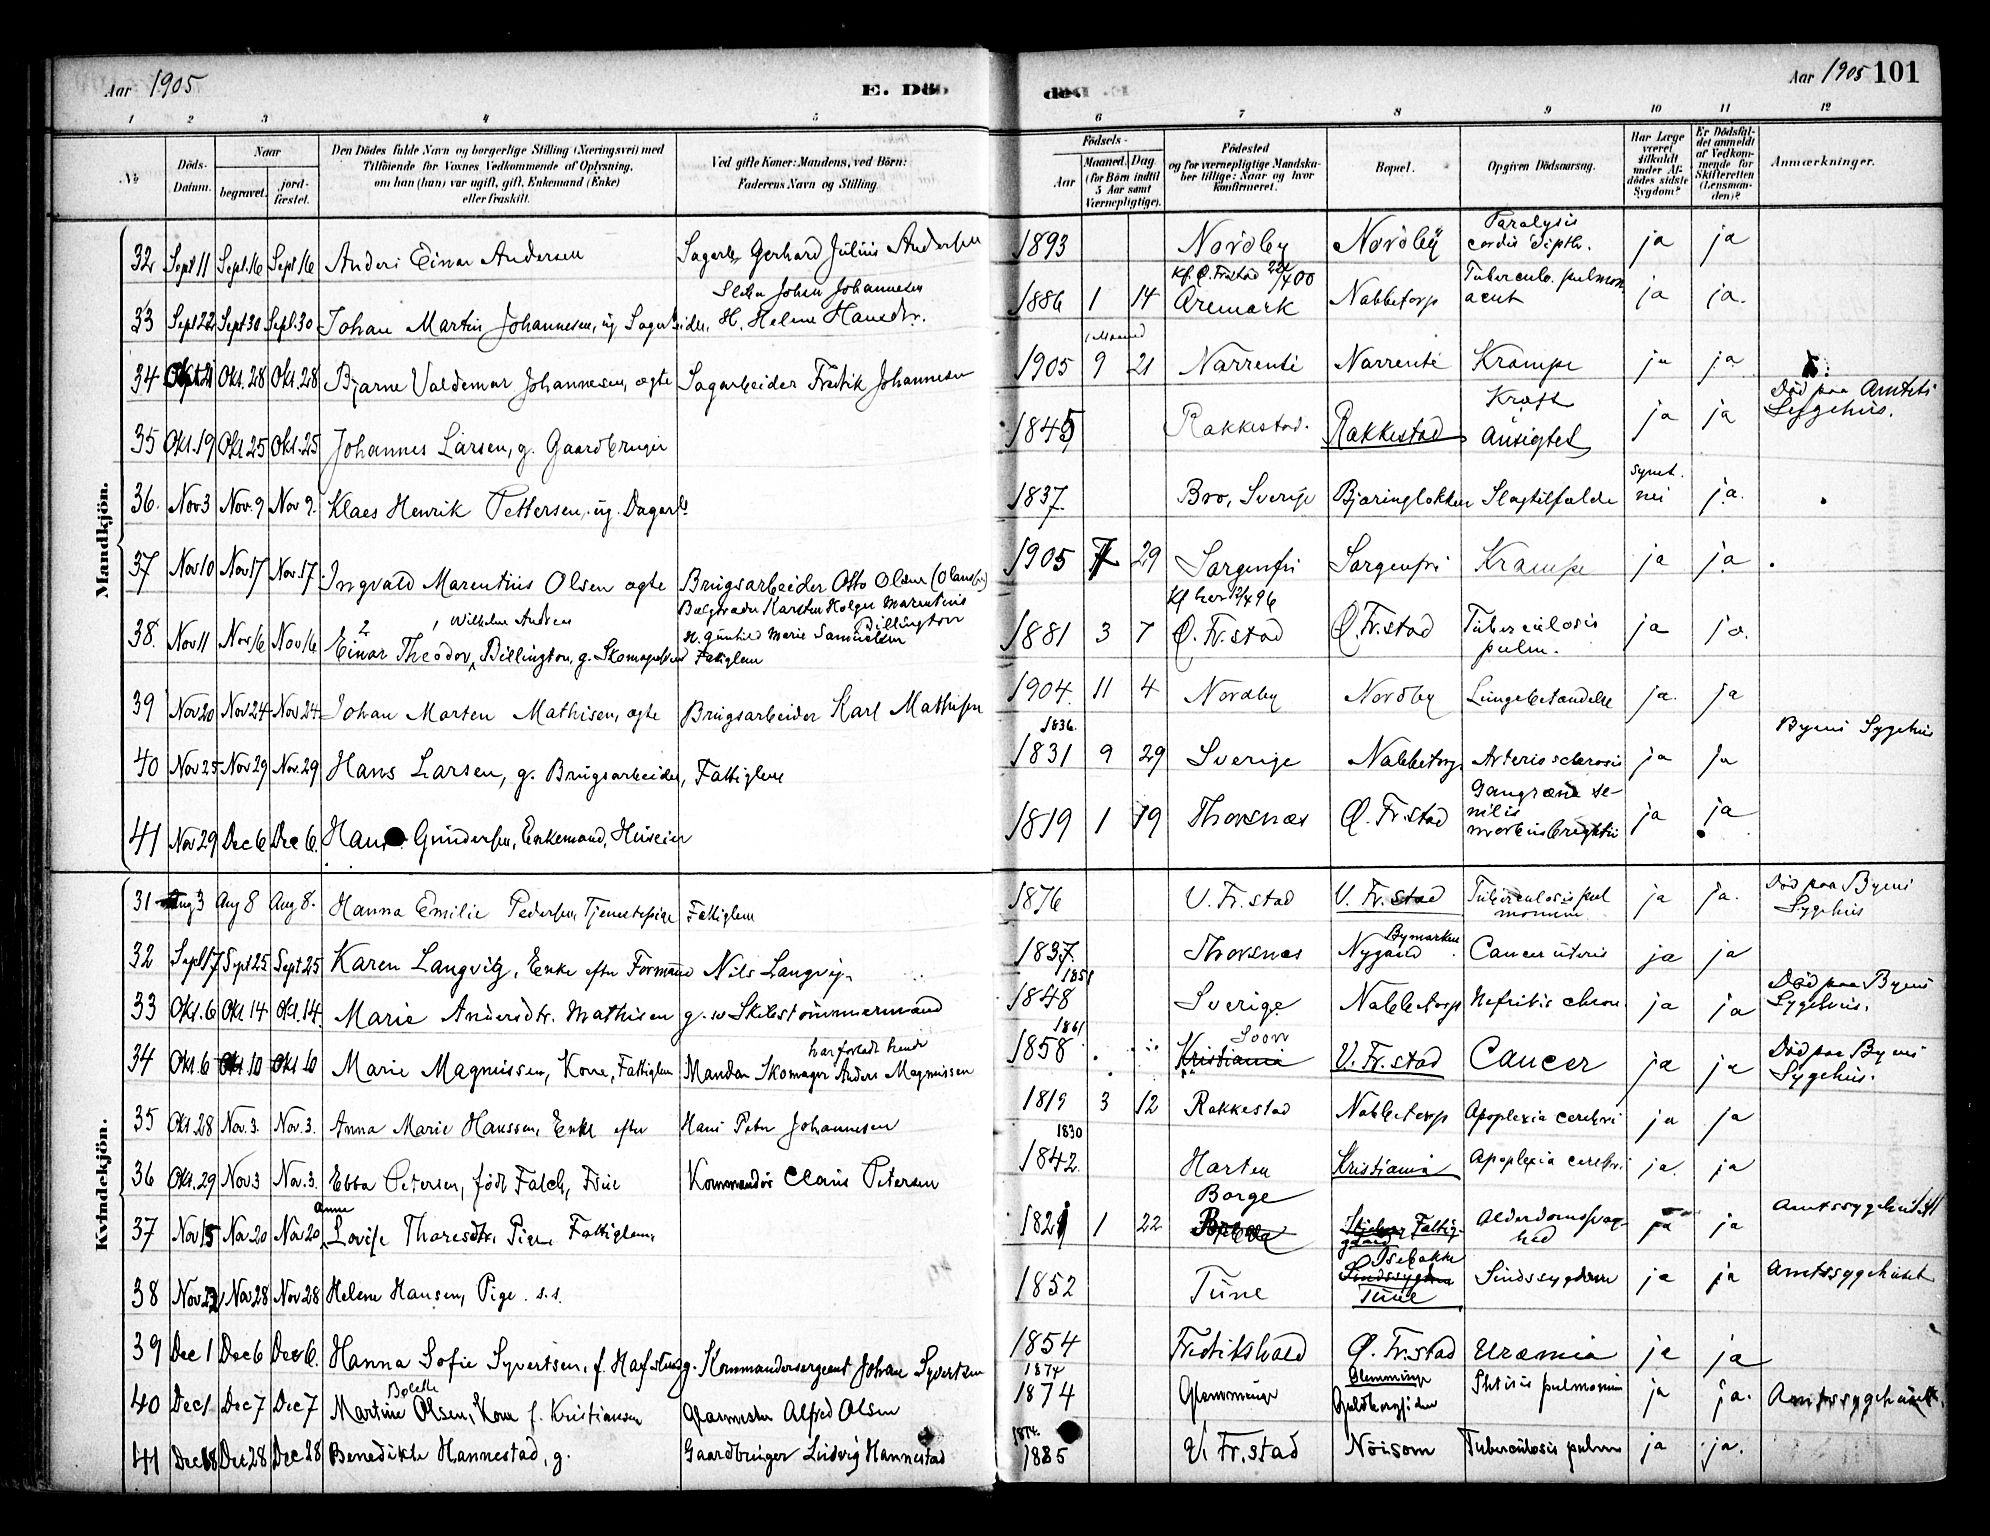 Aar 1905 E. Döde. Aar 1905 101
1 2 3 4 5 6 7 8 9 10 11 12
No Döds-Datum. Naar begravet. jord-fæstet. Den Dödes fulde Navn og borgerlige Stilling (Næringsvei) med Tilföiende for Voxnes Vedkommende af Oplysning, om han (hun) var ugift, gift, Enkemand (Enke) eller fraskilt. Ved gifte Koner: Mandens, ved Börn: Faderens Navn og Stilling. Födsels- Aar Maaned. Dag (for Börn indtil 5 Aar samt Værnepligtige). Födested og for værnepligtige Mandskaber tillige: Naar og hvor Konfirmeret. Bopæl. Opgiven Dödsaarsag. Har Læge været tilkaldt under Afdödes sidste Sygdom? Er Dödsfaldet anmeldt af Vedkommende for Skifteretten (Lensmanden)? Anmærkninger.
Mandkjön.
32 Sept 11 Sept. 16 Sept 16 Anders Einar Andersen Sagarb. Gerhard Julius Andersen 1893 Nordby Nordby Paralysis cordis dipth. ja ja
33 Sept 22 Sept 30 Sept. 30 Johan Martin Johannesen, ug. Sagarbeider, Johan Johannesen H. Helene Hansdr. 1886 1 14 Kf. Ø. Fr.stad Aremark Nabbetorp Tubercul. pulmon. acut ja ja.
34 Okt 21 Okt. 28 Okt. 28 Bjarne Valdemar Johannesen, ægte Sagarbeider Fredrik Johannesen 1905 9 21 Narrenté Narrenté Krampe ja ja
35 Okt. 19 Okt. 25 Okt. 25 Johannes Larsen, g. Gaardbruger 1845 Rakkestad. Rakkestad Kræft Ansigtet ja ja Död paa Amtets Sygehus.
36. Nov 3 Nov. 9 Nov 9. Klaes Henrik Pettersen, ug. Dagarb. 1837. Bro, Sverige Bjøringløkken Slagtilfælde nei ja.
37 Nov 10 Nov 17 Nov. 17 Ingvald Marentius Olsen ægte Brugsarbeider Otto Olsen 1905 7 29 Sorgenfri Sorgenfri Krampe ja ja
38. Nov 11 Nov 16 Nov 16 Einar Theodor Wilhelm Andreas Billington, g. Karsten Holger Marentius Billington H. Gunhild Marie Samuelsen Fattiglem 1881 3 7 Kf her Ø. Fr.stad Ø. Fr.stad Tuberculosis pulm. ja ja.
39 Nov 20 Nov 24 Nov 24 Johan Morten Mathisen, ægte Brugsarbeider Karl Mathisen 1904. 11 4 Nordby Nordby Lungebetændelse ja. ja
40 Nov 25 Nov 29 Nov. 29 Hans Larsen, g. Brugsarbeider, Fattiglem 1836. 1831 9 29 Sverige Nabbetorp Arteriosclerosis ja ja Byens Sygehus
41 Nov 29 Dec 6 Dec 6. Hans Gundersen, Enkemand, Huseier 1819 1 19 Thorsnæs Ø. Fr.stad Gangræna senilis morbus brightii ja ja
Kvindekjön.
31 Aug 3 Aug 8 Aug 8. Hanna Emilie Pedersen, Tjenestepige Fattiglem 1876 V. Fr.stad V. Fr.stad Tuberculosis pulmonum ja ja. Död paa Byens Sygehus
32 Sept 17 Sept 25 Sept 25 Karen Langvig, Enke efter Formand Nils Langvig 1837. Thorsnæs Bymarken Nygaard Cancer uteris ja ja
33 Okt. 6 Okt 14 Okt. 14. Marie Andersdtr. Mathisen g. m Skibstømmermand 1851 1848 Sverige Nabbetorp Nefritis chron. ja ja Död paa Byens Sygehus.
34 Okt. 6 Okt 10 Okt 10 Marie Magnussen, Kone, Fattiglem har forladt hende Manden Skomager Anders Magnussen 1861. 1858 Soon Kristiania V. Fr.stad Cancer ja ja Död paa Byens Sygehus.
35 Okt. 28 Nov. 3. Nov. 3. Anna Marie Hanssen, Enke efter Hans Peter Johannesen 1819 3 12 Rakkestad Nabbetorp Apoplexia cerebri ja ja
36 Okt. 29 Nov 3 Nov. 3. Ebba Petersen, född Falch, Frue Kommandör Claus Petersen 1830 1842. Horten Kristiania Apoplexia cerebri ja. ja
37 Nov 15 Nov 20 Nov 20 Anne Lovise Thoresdtr. Pige Fattiglem 1821 1 22 Borge Fattiggaard Alderdomssvaghed ja ja Amtssygehuset
38 Nov 22 Nov 28 Nov 28 Helene Hansen, Pige. s.s. 1852 Tune Isebakke Tune Sindssygdom ja ja Amtssygehuset
39 Dec 1 Dec 6 Dec 6. Hanna Sofie Syvertsen, f. g. Kommandersergeant Johan Syvertsen 1854 Fredrikshald Ø. Fr.stad Uræmia ja ja
40 Dec 1. Dec 7 Dec 7 Martine Bolette Olsen, Kone f. Kristiansen Glasmester Alfred Olsen 1874 1874 Glemminge Glemminge Phtisis pulmonum ja ja. Amtssygehuset.
41 Dec 18 Dec 28 Dec 28 Benedikte Hannestad, g. Gaardbruger Ludvig Hannestad 1874. 1885 V. Fr.stad Nöisom Tuberculosis pulm ja ja.